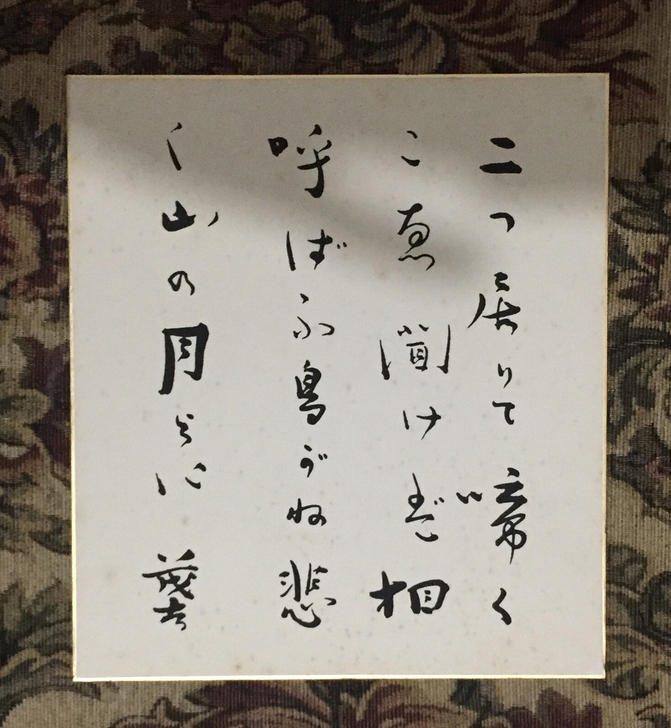 二つ居りて啼く
こゑ聞けば相
呼ばふ鳥がね悲
し山の月よに 茂吉